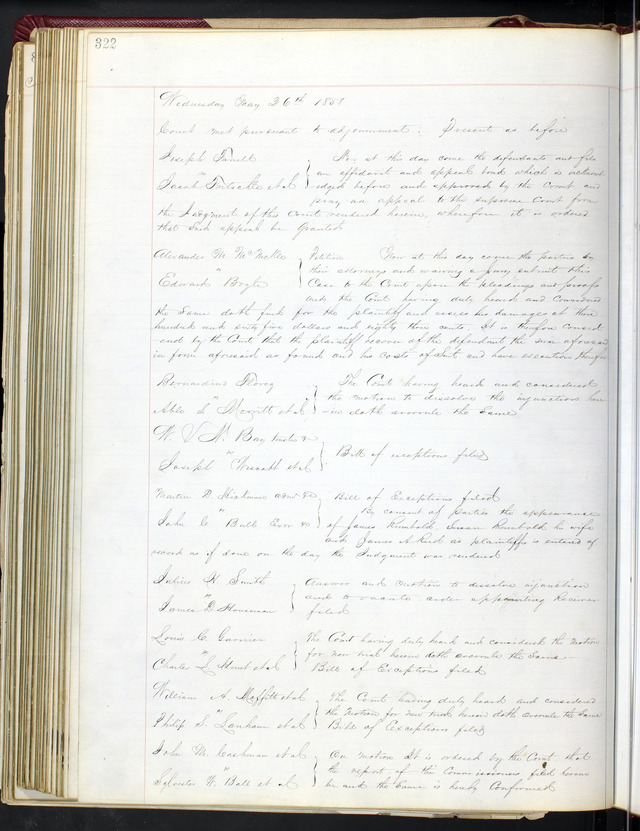 322
Wednesday May 26th 1858
Court met pursuant to adjournment. Present as before
Joseph
Now at this day come the defendants and file
vs
an affidavit and appeal bond which is acknowl
Jacob et al
edged before and approved by the Court and
pray an appeal to the Supreme Court from
the Judgment of this Court rendered herein, wherefore it is ordered
that Such appeal be Granted
Alexander M.
Petition Now at this day come the parties by
vs
their attorneys and waiving a Jury submit this
Edward
Case to the Court upon the pleadings and proofs
and the Court having duly heard and Considered
the Same doth find for the plaintiff and assess his damages at three
hundred and sixty five dollars and eighty three cents. It is therefore Consid
ered by the Court that the plaintiff recover of the defendant the sum aforesaid
in form aforesaid as found and his costs of suit and have execution therefor
Bernardine
The Court having heard and considered
vs
the motion to dissolve the injunction here
Merritt et al
in doth overrule the Same
W. V. N. Bay
Bill of exceptions filed
vs
Joseph et al
Martin D.
Bill of Exceptions filed
By consent of parties the appearance
vs
John C. Bull
of James Rumbold, Susan Rumbold his wife
and James A. as plaintiffs is entered of
record as if done on the day the Judgment was rendered
Julius H. Smith
Answer and motion to dissolve injunction
vs
and to vacate order appointing Receiver
James D.
filed
Louis C. Garnier
The Court having duly heard and considered the motion
vs
for new trial herein doth overrule the Same
Charles L. et al
Bill of Exceptions filed
William A. Moffitt et al
The Court having duly heard and considered
vs
the Motion for new trial herein doth overrule the Same
Philip S. Lanham et al
Bill of Exceptions filed
John M. et al
On motion It is ordered by the Court that
vs
the report of the Commissioners filed herein
Sylvester W. Ball et al
be and the Same is hereby Confirmed